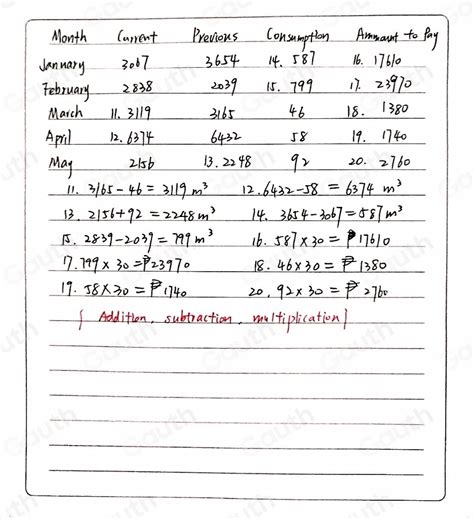 Month Current Previous Consumption Amount to Pay
January 3067 3654 14. 587 16. 17610
February 2838 2039 15. 799 17. 23970
March 11. 3119 3165 46 18. 1380
April 12. 6374 6432 58 19. 1740
May 2156 13. 2248 92 20. 2760
11. 3165-46=3119 m³ 12. 6432-58=6374 m³
13. 2156+92=2248 m³ 14. 3654-3067=587 m³
15. 2839-2039=799 m³ 16. 587×30=₱17610
17. 799×30=₱23970 18. 46×30=₱1380
19. 58×30=₱1740 20. 92×30=₱2760
{ Addition, subtraction, multiplication }